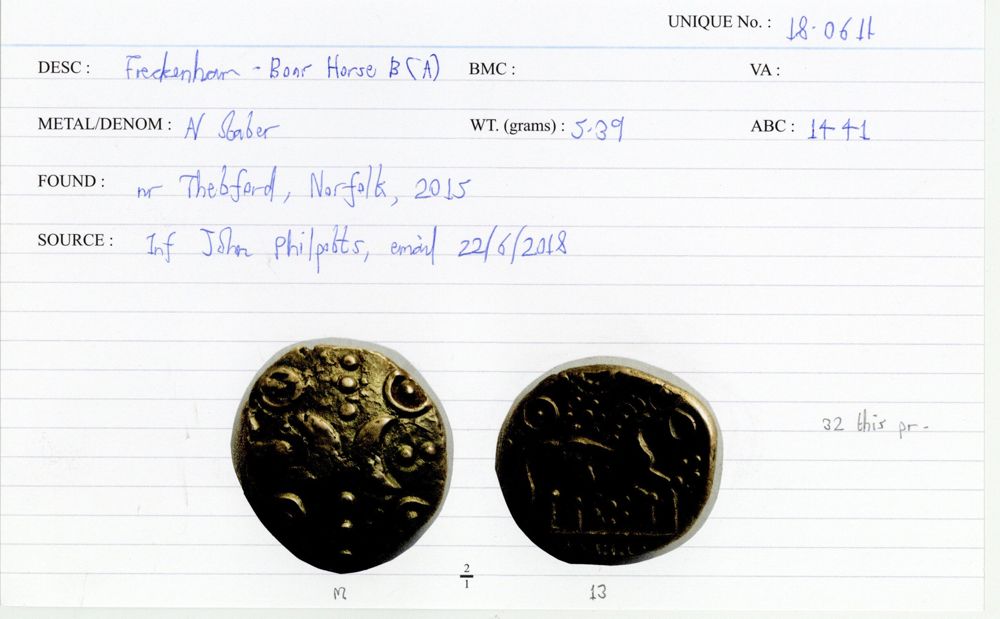 UNIQUE No. : 18·0611
DESC : Freckenham - Boar Horse B (A) BMC : VA :
METAL/DENOM : AV Stater WT. (grams) : 5·39 ABC : 1441
FOUND : nr Thetford, Norfolk, 2015
SOURCE : Inf John Philpotts, email 22/6/2018
32 this pr.
2
1
M 13